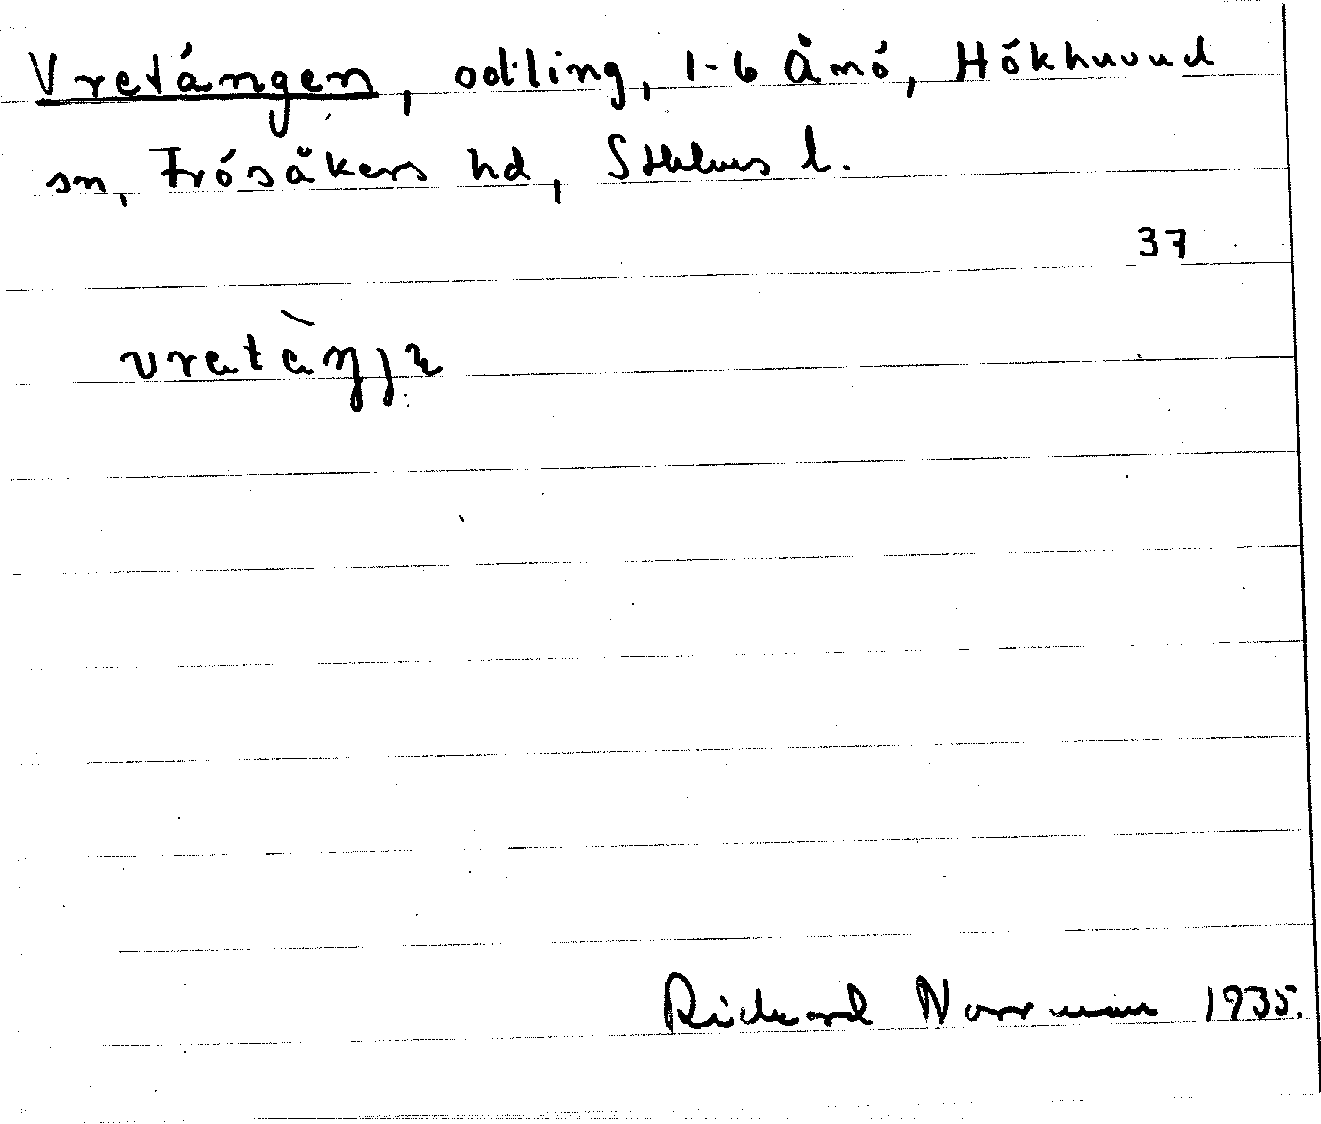 Vretängen, odling, 1-6 Ånö, Hökhuvud
sn, Frösåkers hd, Sthlms l.
37
Rickard Norrman 1935.